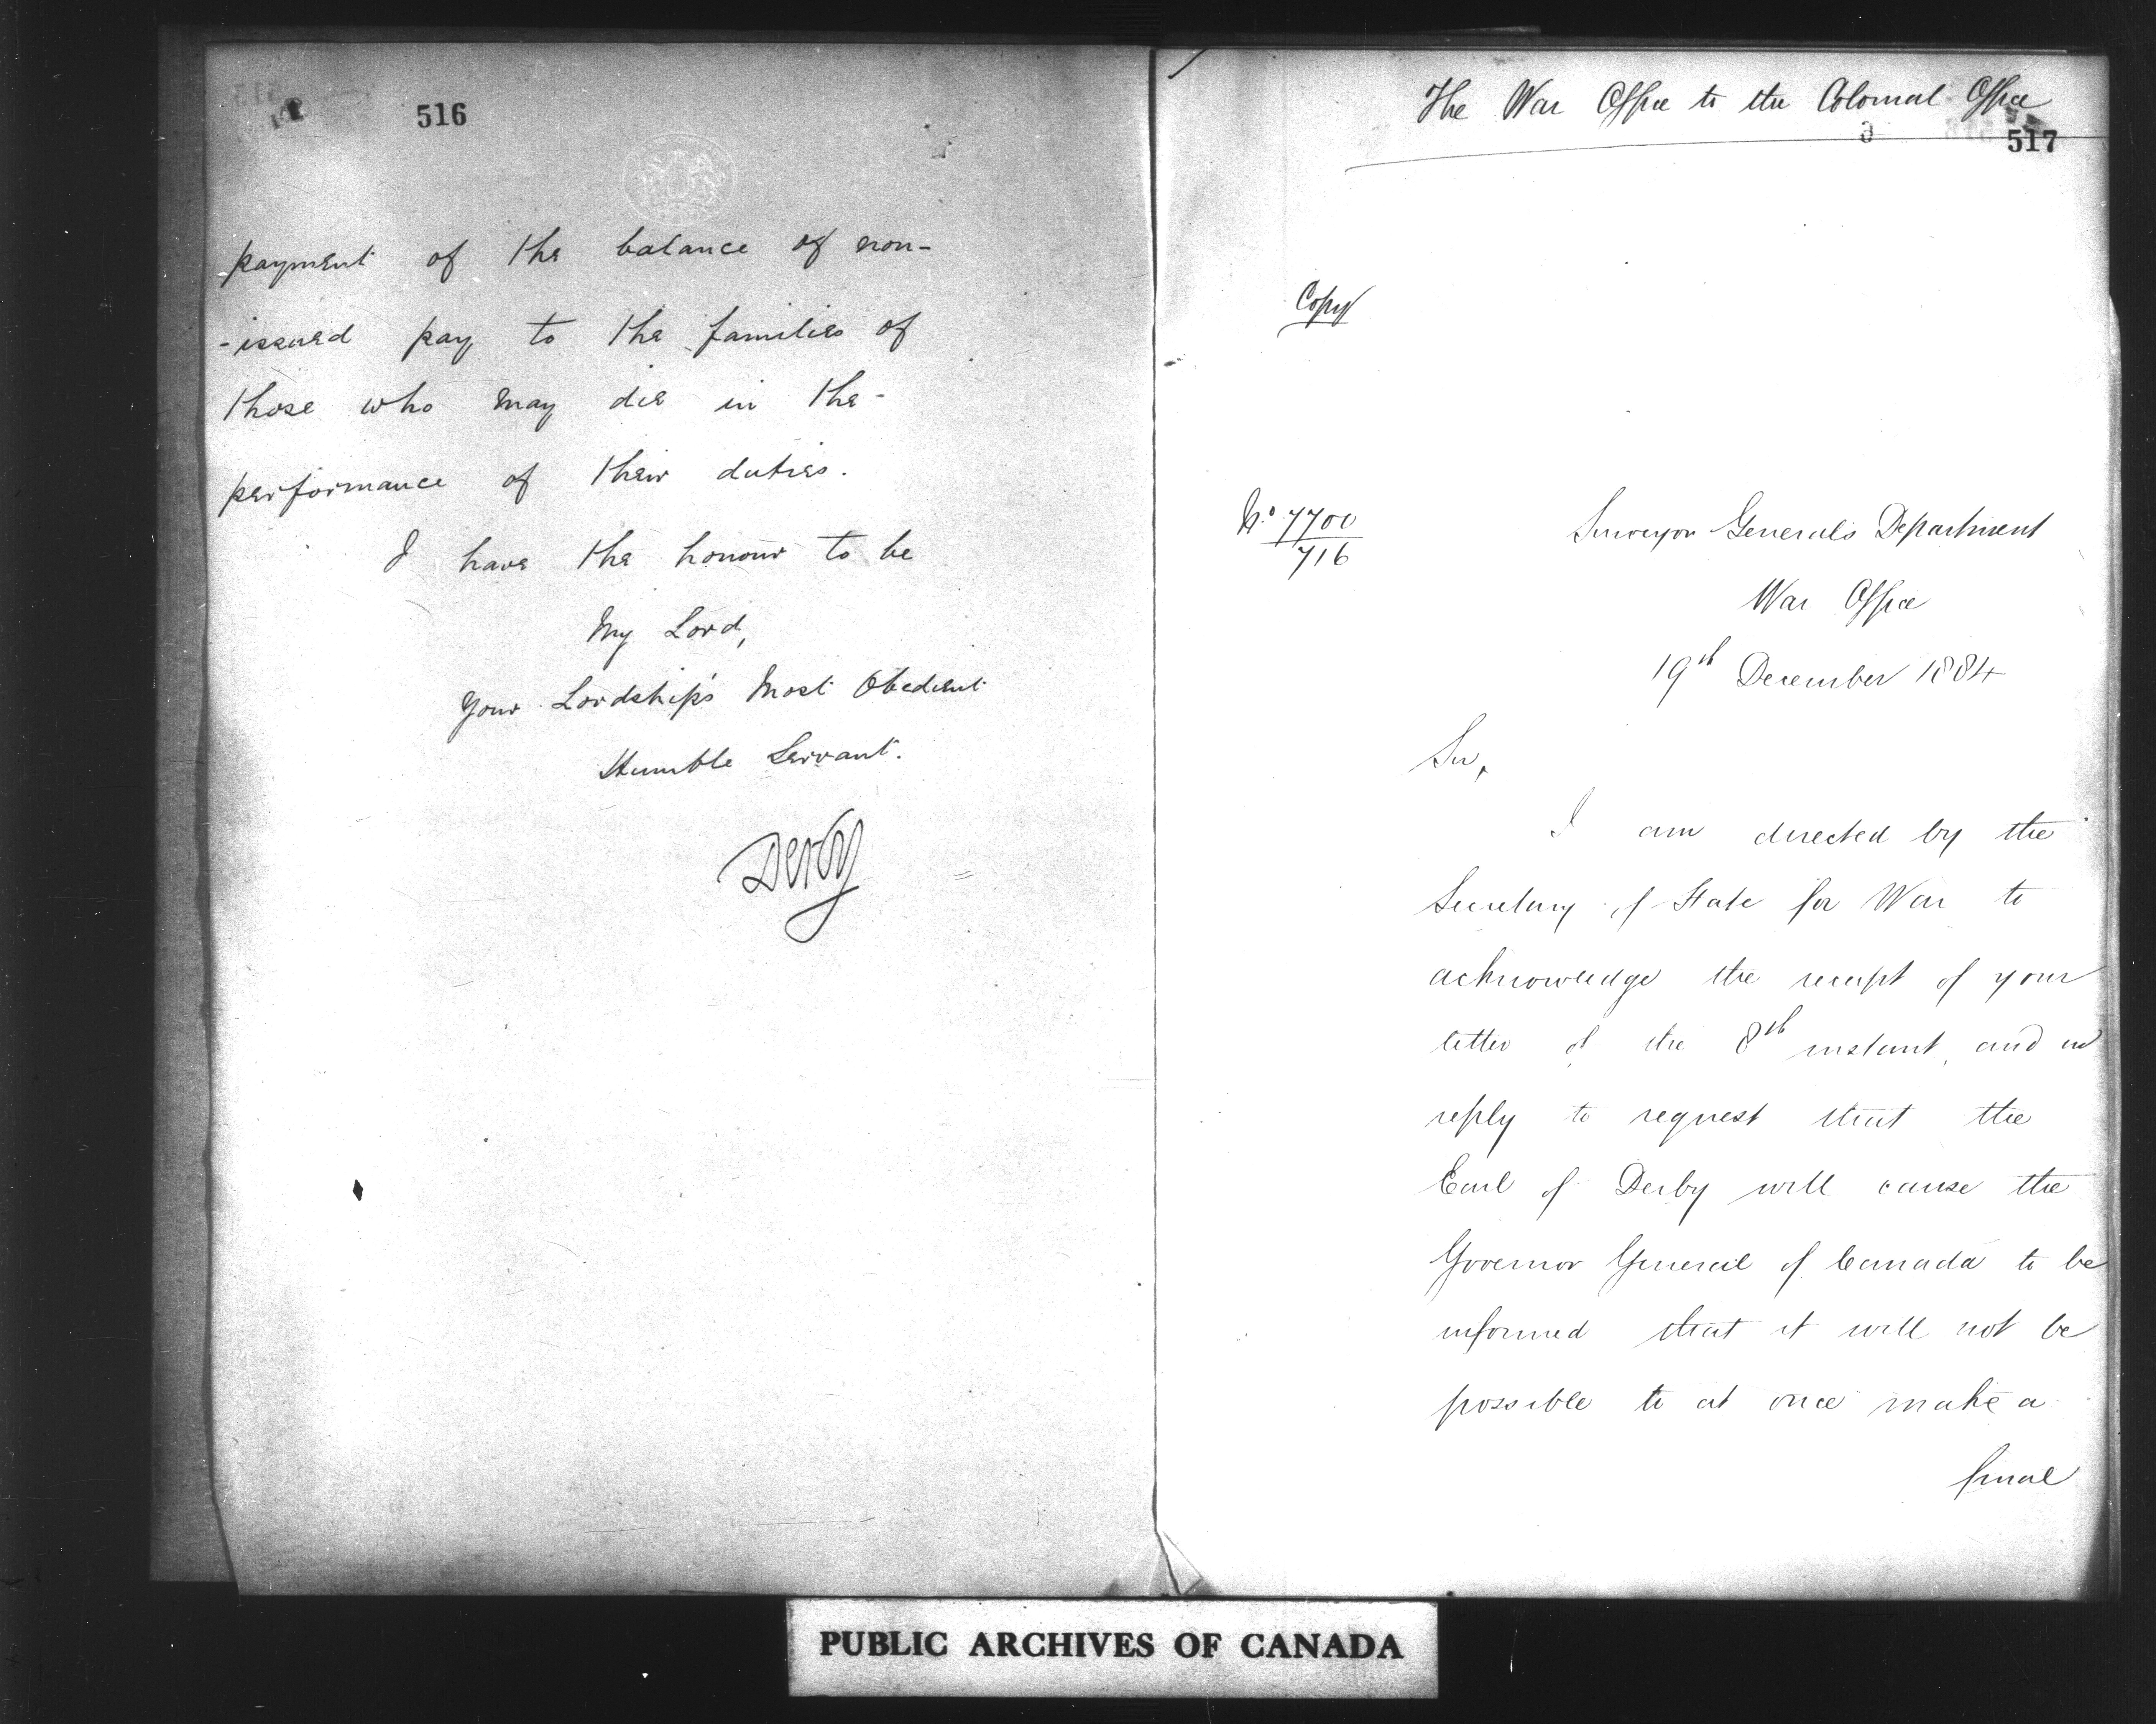 516
payment of the balance of non-
-issued pay to the families of
those who may die in the-
performance of their duties.
I have the honour to be
My Lord,
Your Lordship's Most Obedient
Humble Servant.
Derby
The War Office to the Colonial Office
517
Copy
No. 7700
716
Surveyor General's Department
War Office
19th December 1884
Sir,
I am directed by the
Secretary of State for War to
acknowledge the receipt of your
letter of the 8th instant, and in
reply to request that the
Earl of Derby will cause the
Governor General of Canada to be
informed that it will not be
possible to at once make a
final
PUBLIC ARCHIVES OF CANADA